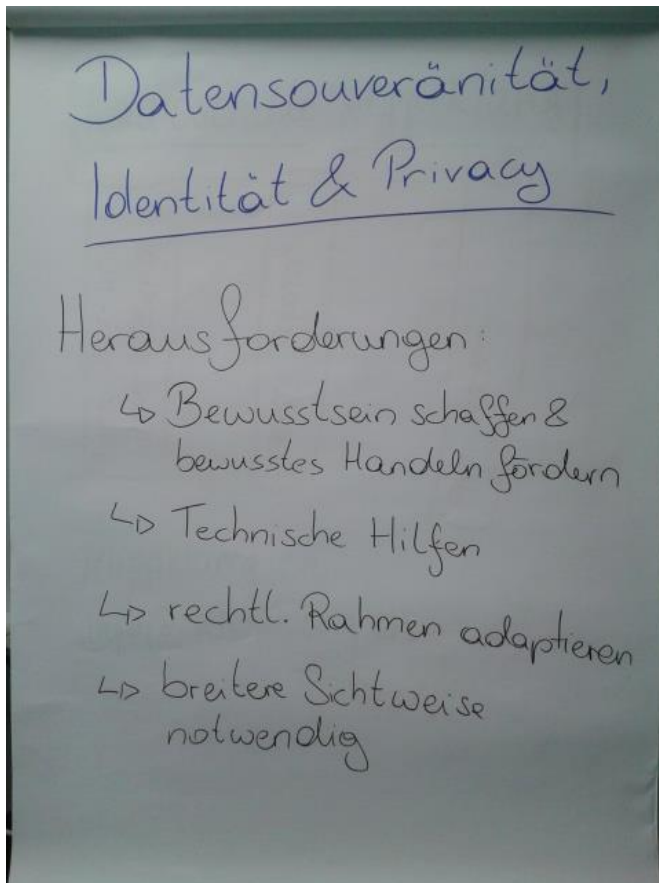 Datensouveränität,
Identität & Privacy
Herausforderungen:
↳ Bewusstsein schaffen &
bewusstes Handeln fördern
↳ Technische Hilfen
↳ rechtl. Rahmen adaptieren
↳ breitere Sichtweise
notwendig